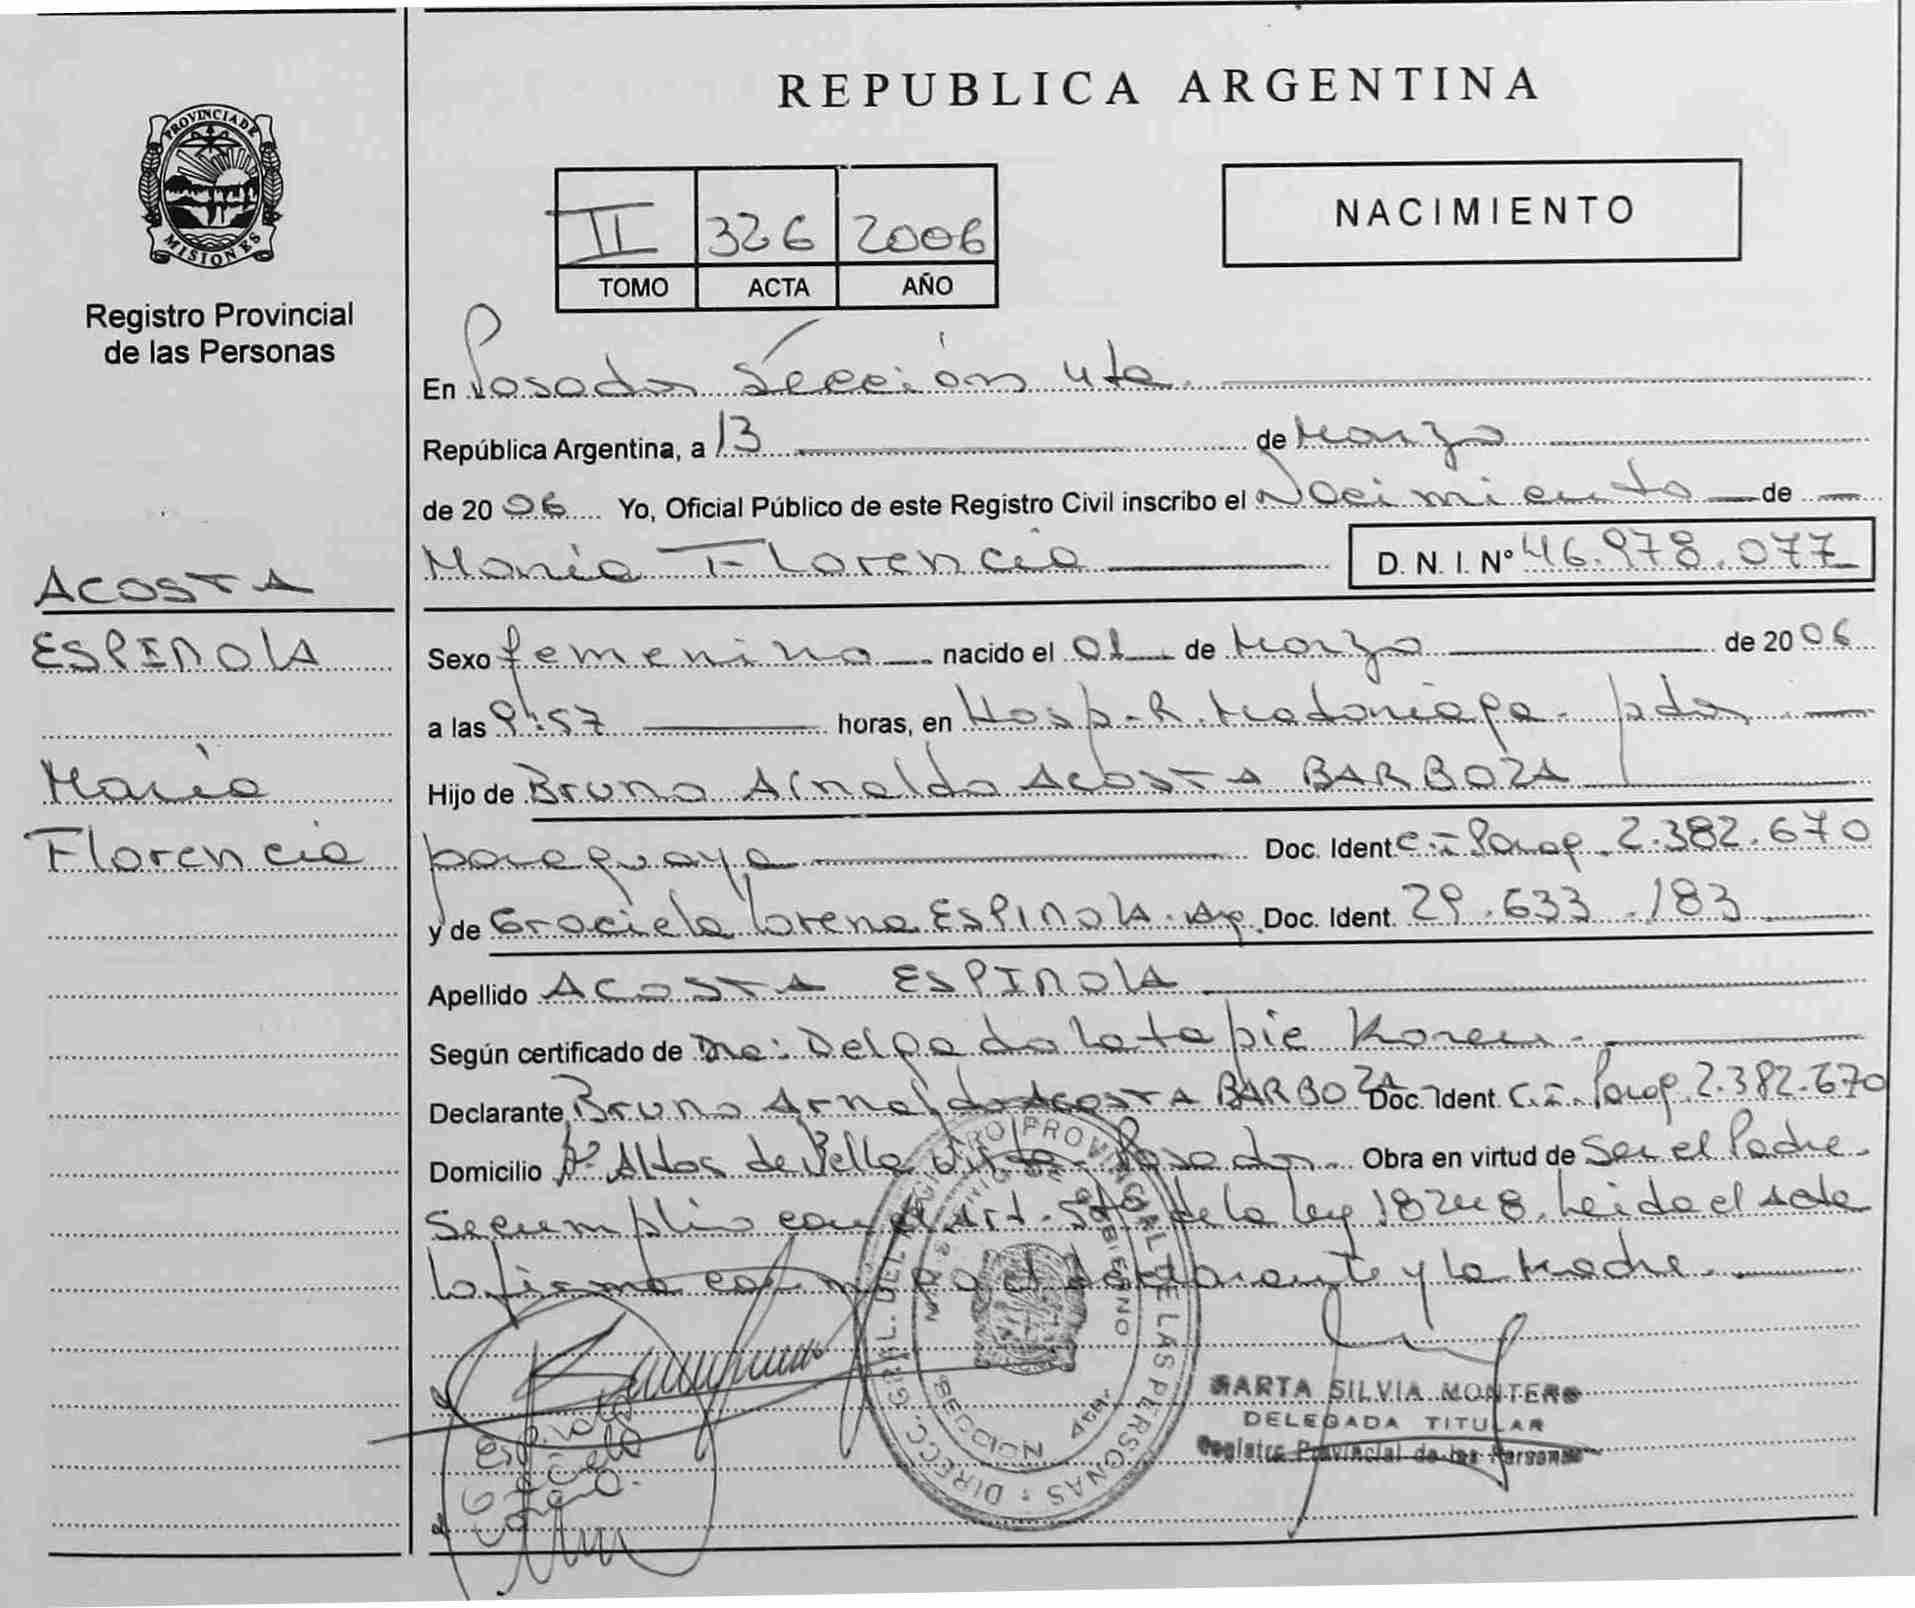 REPUBLICA ARGENTINA
PROVINCIA DE MISIONES
Registro Provincial
de las Personas
II 326 2006
TOMO ACTA AÑO
NACIMIENTO
En Posadas Sección 4ta.
República Argentina, a 13 de Marzo
de 2006 Yo, Oficial Público de este Registro Civil inscribo el Nacimiento de
María Florencia D. N. I. Nº 46.978.077
ACOSTA
ESPINOLA
María
Florencia
Sexo femenino nacido el 01 de Marzo de 2006
a las 9:57 horas, en Hosp. R. Madariaga - pdas
Hijo de Bruno Arnaldo Acosta BARBOZA
paraguaya Doc. Ident. C.I. Parag. 2.382.670
y de Graciela Lorena ESPINOLA. Ag. Doc. Ident. 29.633.183
Apellido ACOSTA ESPINOLA
Según certificado de Dra: Delgado Latapie Karen.
Declarante Bruno Arnaldo Acosta BARBOZA Doc. Ident. C.I. Parag. 2.382.670
Domicilio Bº Altos de Bella Vista - Posadas. Obra en virtud de Ser el Padre.
Se cumplió con el Art. 5to de la ley 18248. Leida el acta
la firma conmigo el declarante y la Madre.
DIRECC. GRAL. DEL REGISTRO PROVINCIAL DE LAS PERSONAS
MINISTERIO DE GOBIERNO
SECCION 4ta.
MARTA SILVIA MONTERO
DELEGADA TITULAR
Registro Provincial de las Personas
Espinola
Graciela
Lorena